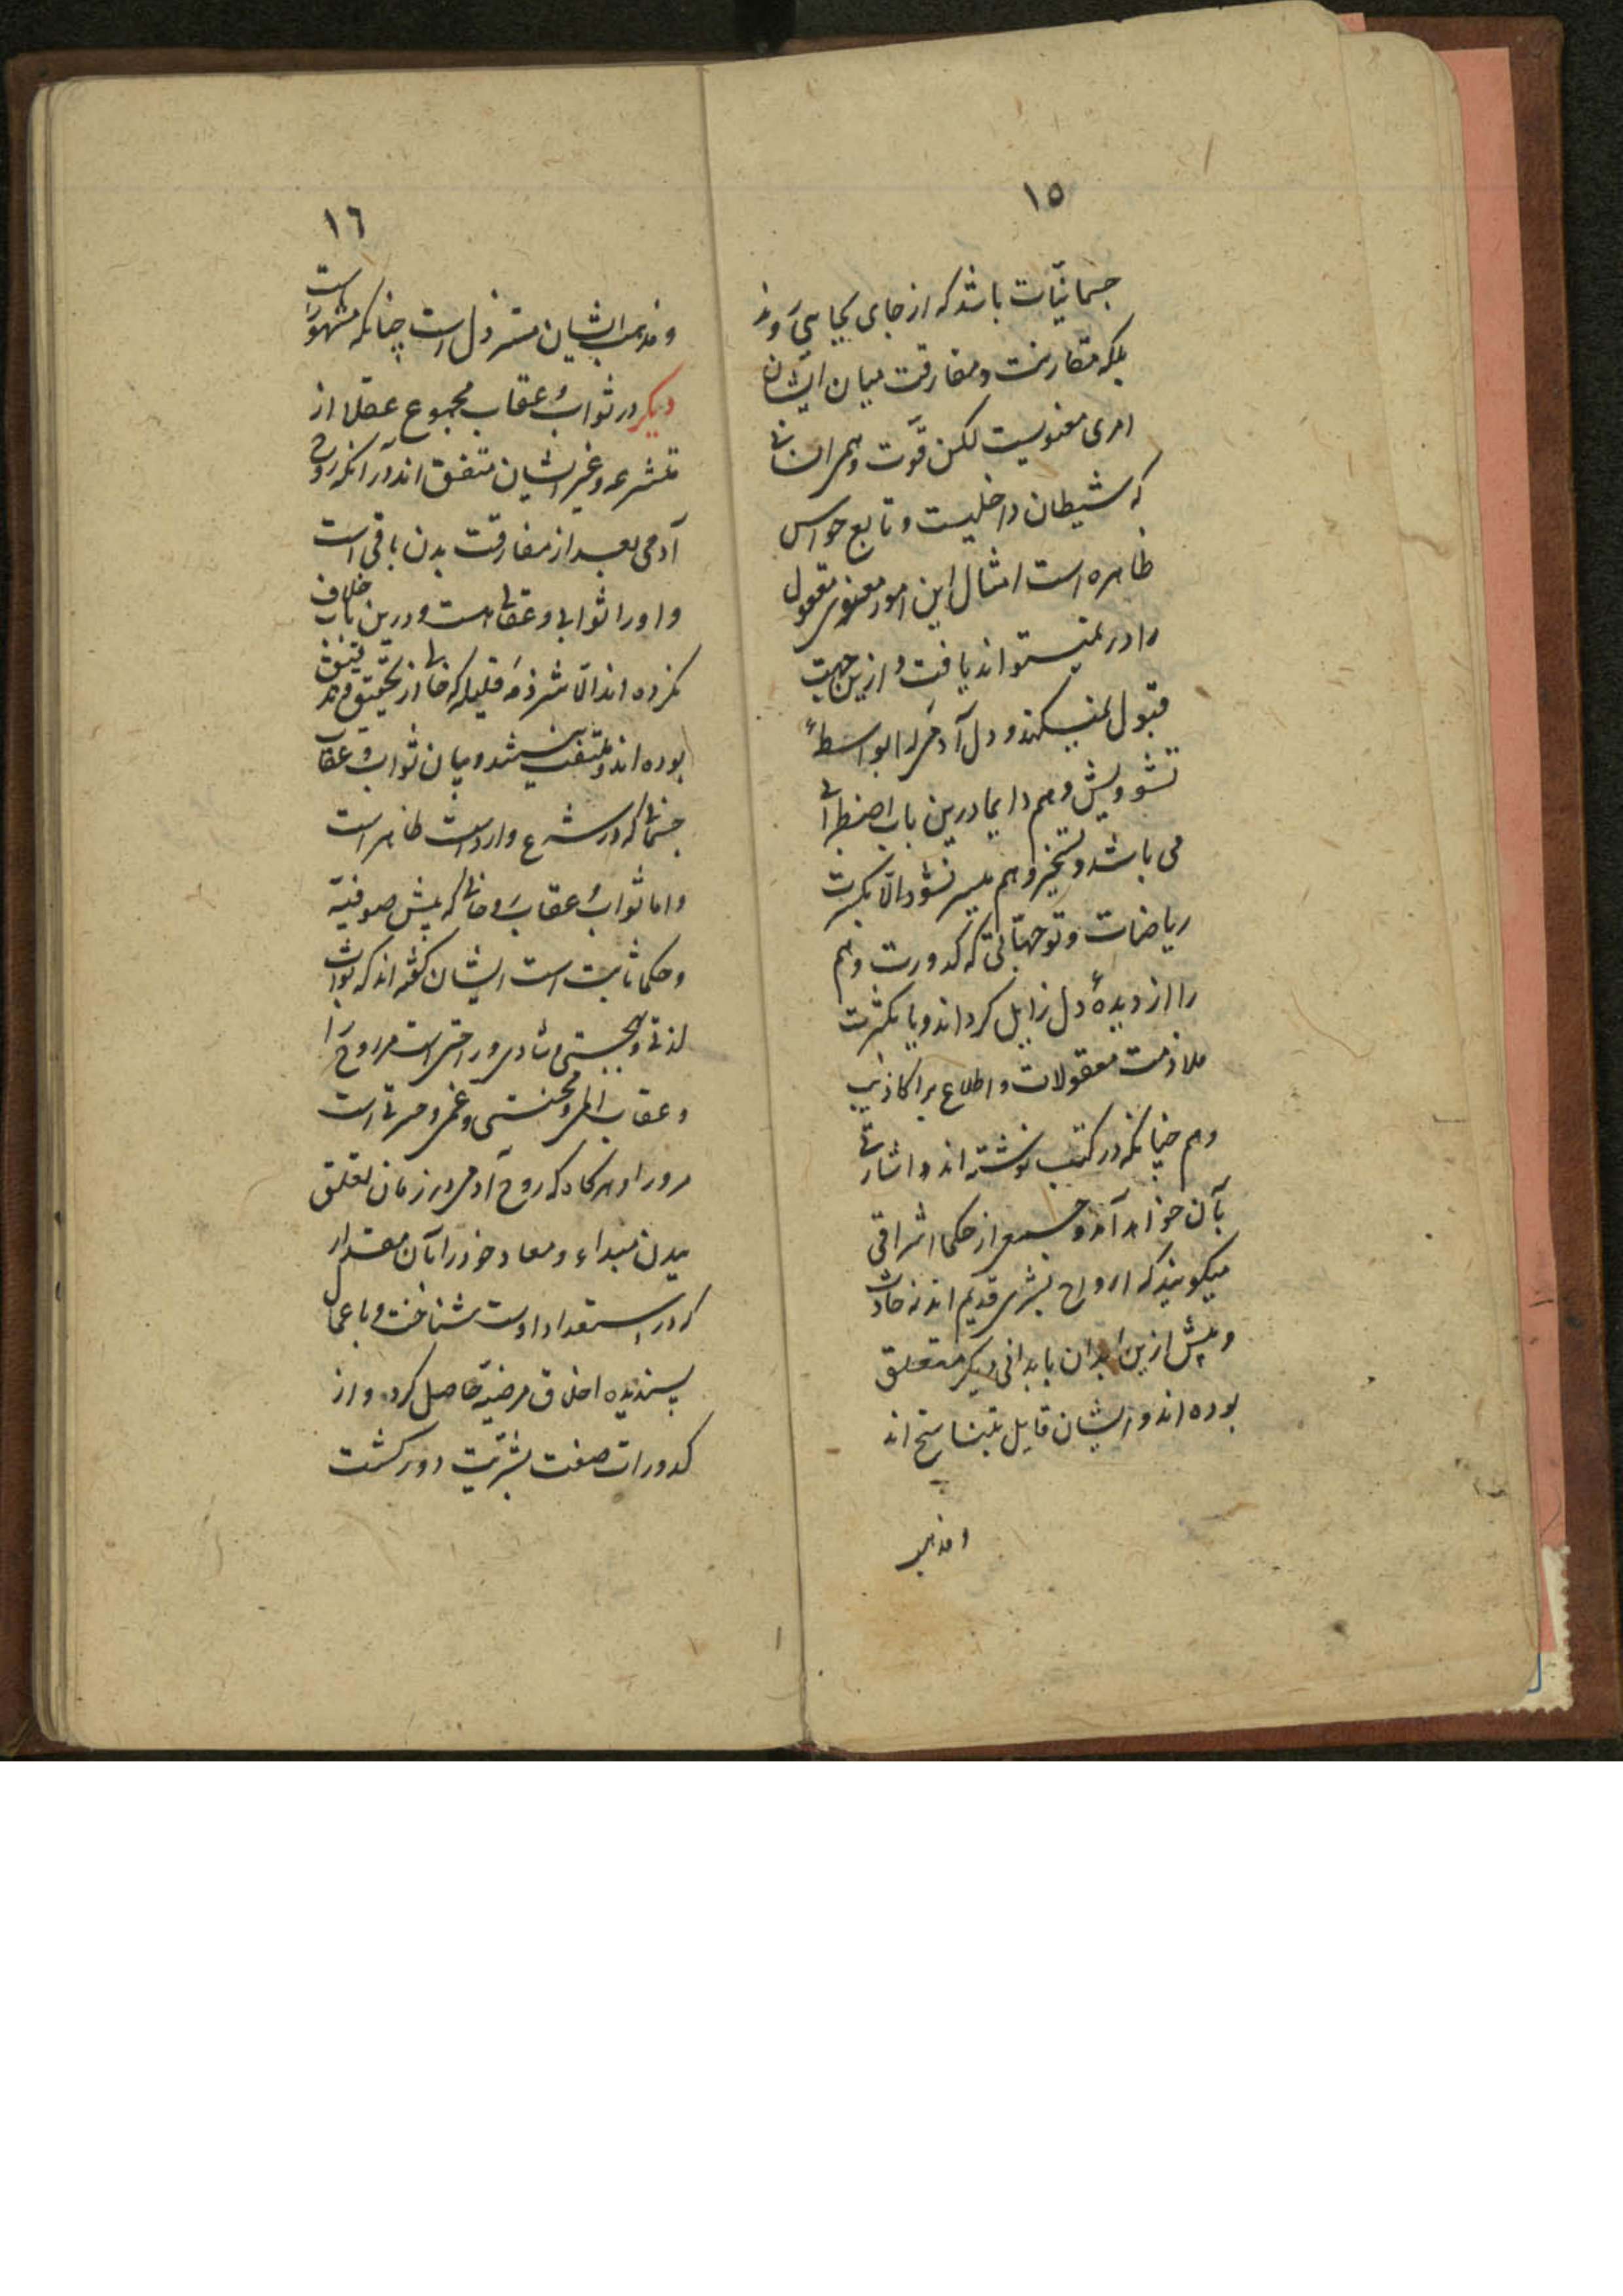 ١٥
جسمانیات باشد که از جای بجایی روند
بلکه مقارنت و مفارقت میان ایشان
امری معنویست لکن قوّت وهمی انسانی
که شیطان داخلیست و تابع حواس
ظاهره است امثال این امور معنوی معقول
را در نمیتواند یافت و ازین جهت
قبول نمیکند و دل آدمی را بواسطهٔ
تشویش وهم دایما درین باب اضطرابی
می باشد و تسخیر وهم میسر نشود الّا بکثرت
ریاضات و توجهاتی که کدورت وهم
را از دیدهٔ دل زایل کرداند و یا بکثرت
ملازمت معقولات و اطلاع بر اکاذیب
وهم چنانکه در کتب نوشته اند و اشارتی
بآن خواهد آمد و جمعی از حکما اشراقی
میکویند که ارواح بشری قدیم اند نه حادث
و پیش ازین ابدان بابدانی دیکر متعلق
بوده اند و ایشان قایل بتناسخ اند
و مذهب
١٦
و مذهب ایشان مسترذل است چنانکه مشهور است
دیکر در ثواب و عقاب مجموع عقلا از
متشرعه و غیر ایشان متفق اند در آنکه روح
آدمی بعد از مفارقت بدن باقی است
و او را ثوابی و عقابی هست و درین باب خلاف
نکرده اند الّا شرذمه قلیله که خالی از تحقیق و تدقیق
بوده اند و ملتفت نیستند و بیان ثواب و عقاب
جسمانی که در شرع وارد است ظاهر است
و اما ثواب و عقاب روحانی که پیش صوفیّه
و حکما ثابت است ایشان کفته اند که ثواب
لذتی و بهجتی و شادی و راحتی است مر روح را
و عقاب المی و محنتی و غمی و حسرتی است
مرورا و هر کاه که روح آدمی در زمان تعلق
ببدن مبداء و معاد خود را بآن مقدار
که در استعداد اوست شناخت و باعمال
پسندیده اخلاق مرضیّه حاصل کرد و از
کدورات صفت بشریّت دور کشت